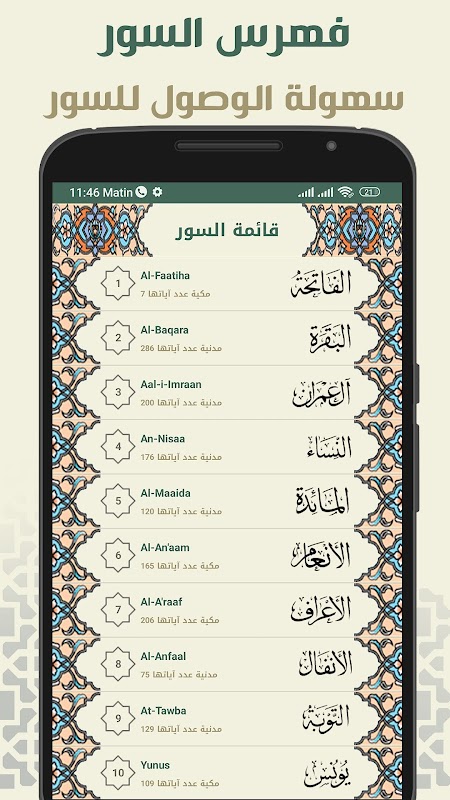 فهرس السور
سهولة الوصول للسور
11:46 Matin 21
قائمة السور
1 Al-Faatiha الفَاتِحَة
مكية عدد آياتها 7
2 Al-Baqara البَقَرَة
مدنية عدد آياتها 286
3 Aal-i-Imraan آل عِمرَان
مدنية عدد آياتها 200
4 An-Nisaa النِّسَاء
مدنية عدد آياتها 176
5 Al-Maaida المَائدة
مدنية عدد آياتها 120
6 Al-An'aam الأنعَام
مكية عدد آياتها 165
7 Al-A'raaf الأعرَاف
مكية عدد آياتها 206
8 Al-Anfaal الأنفَال
مدنية عدد آياتها 75
9 At-Tawba التوبَة
مدنية عدد آياتها 129
10 Yunus يُونس
مكية عدد آياتها 109